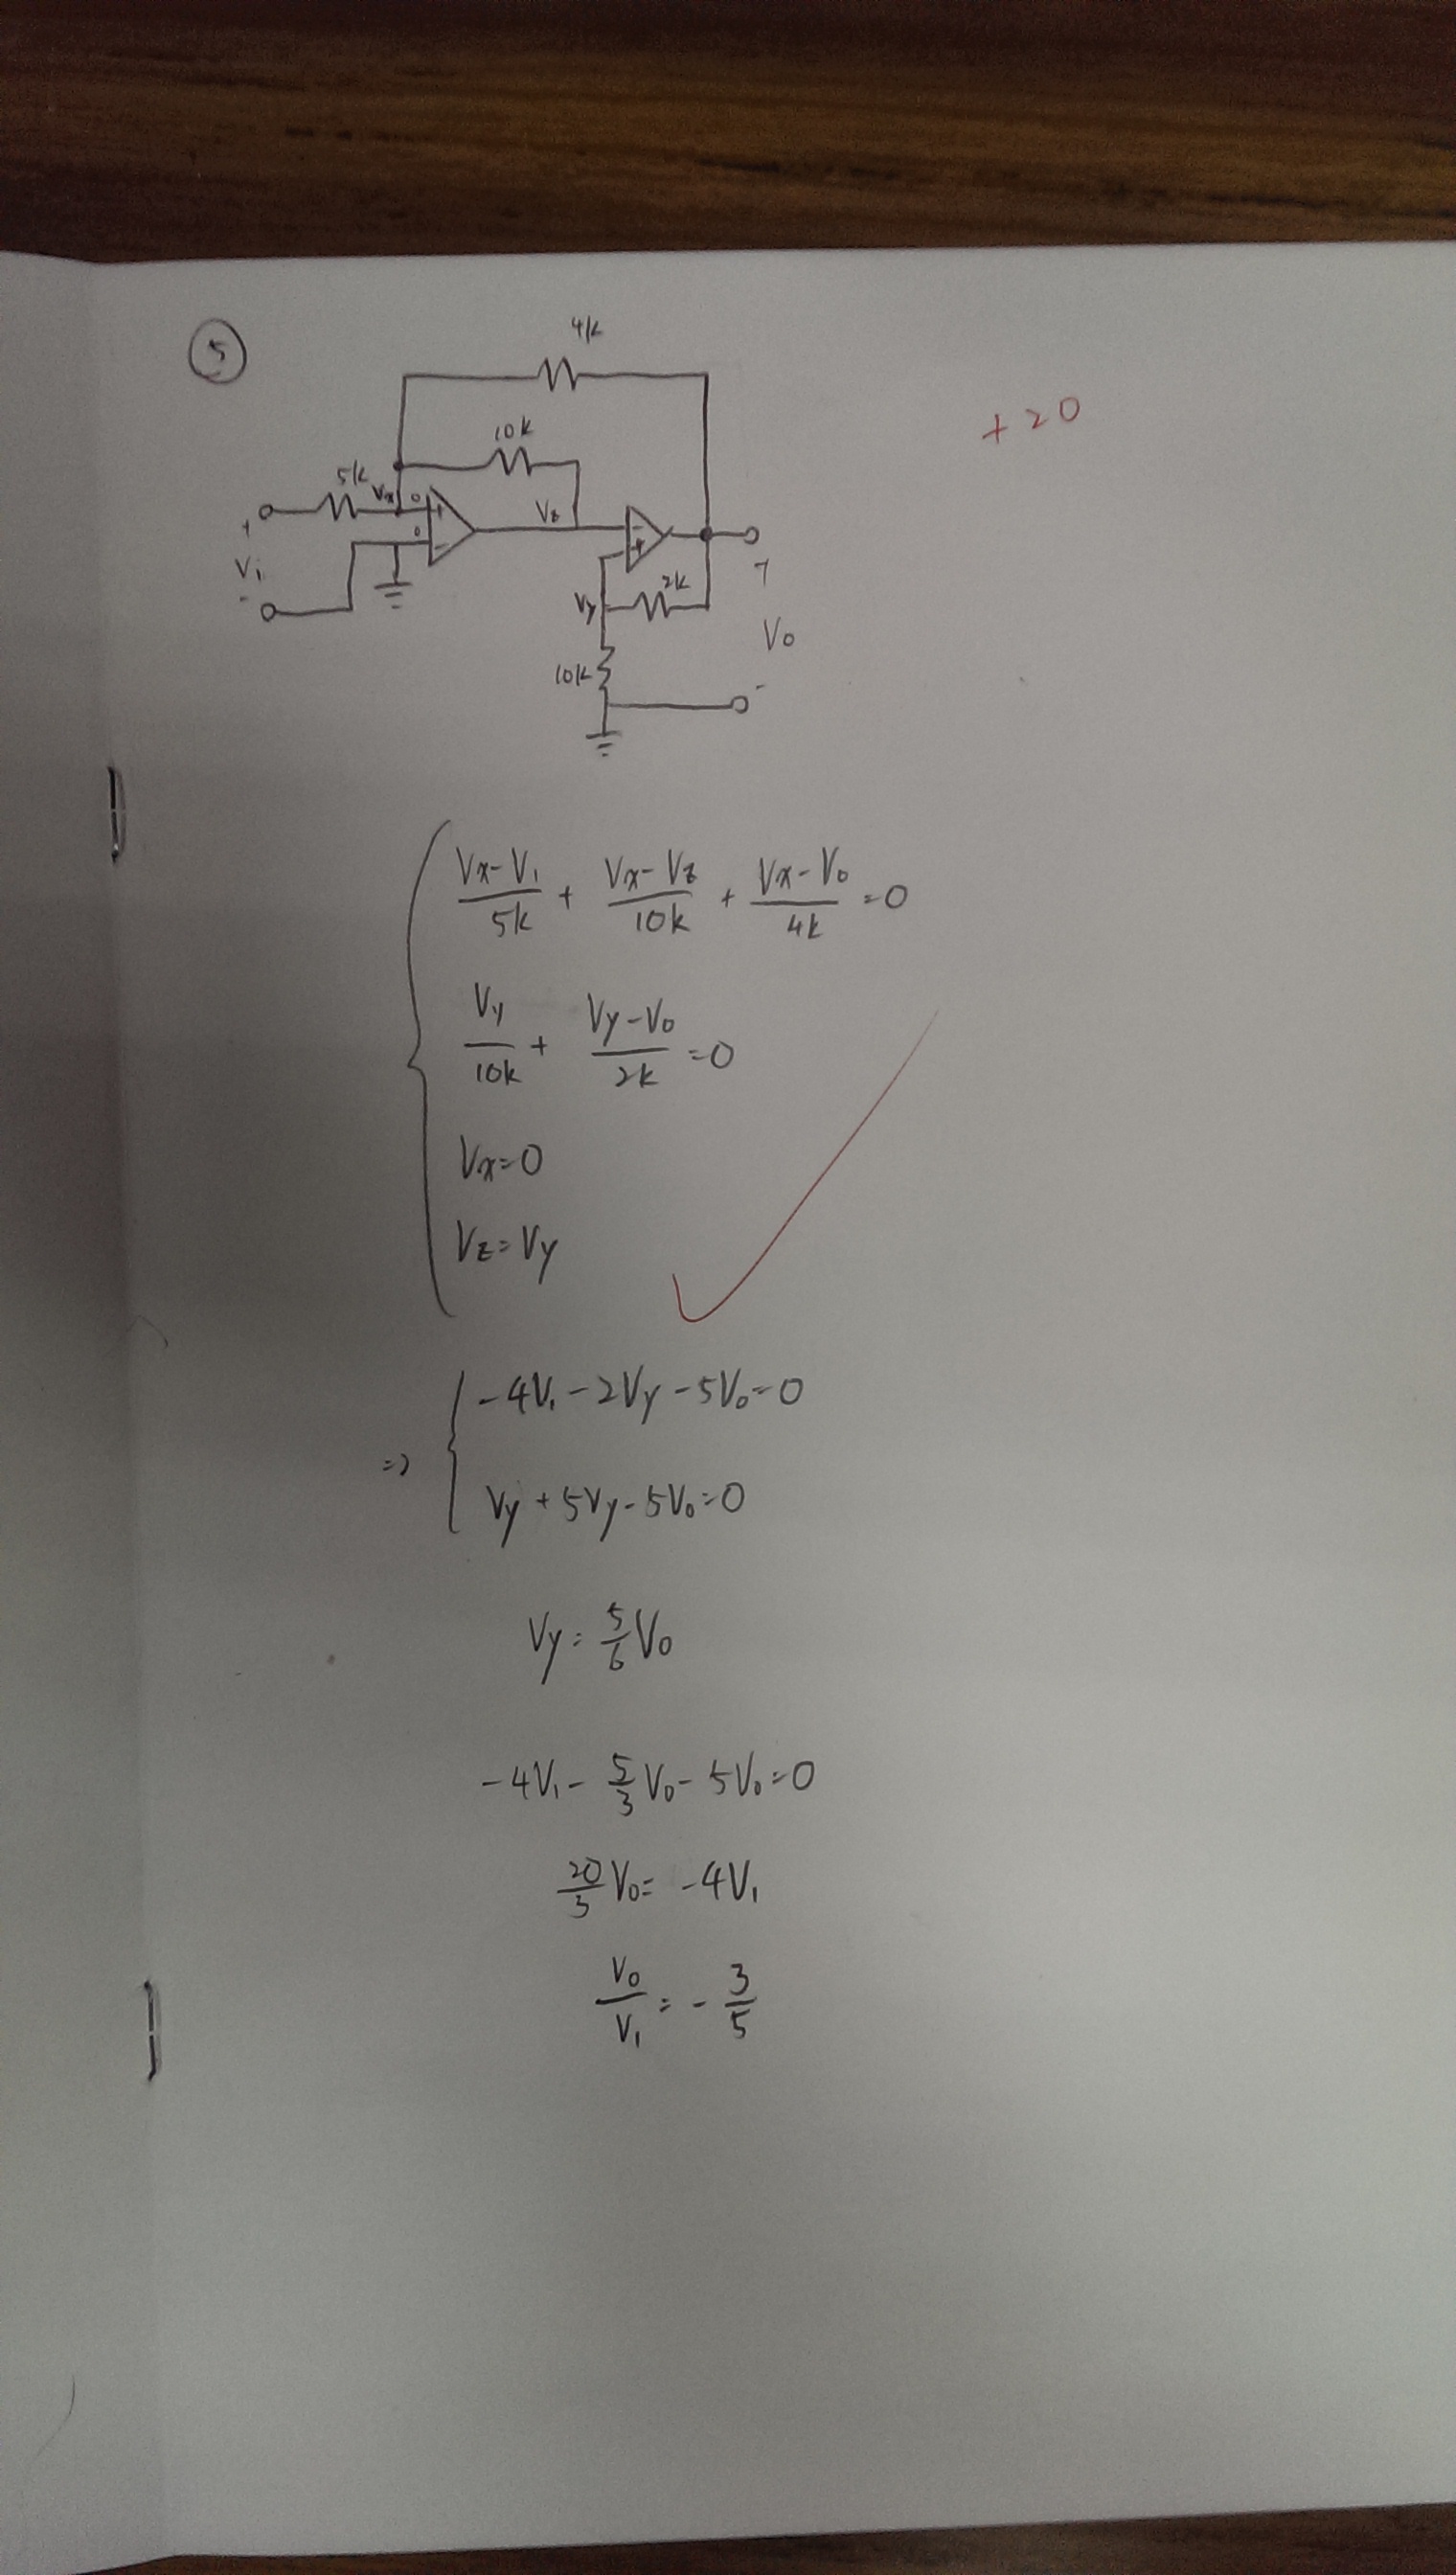 ⑤
4k
+20
10k
5k
Vx 0 +
Vz
-
+
0 -
+
V₁
-
+
2k
Vy
V₀
10k
-
(Vx-V₁)/5k + (Vx-Vz)/10k + (Vx-V₀)/4k = 0
Vy/10k + (Vy-V₀)/2k = 0
Vx=0
Vz=Vy
⇒ -4V₁ - 2Vy - 5V₀ = 0
Vy + 5Vy - 5V₀ = 0
Vy = 5/6 V₀
-4V₁ - 5/3 V₀ - 5V₀ = 0
20/3 V₀ = -4V₁
V₀/V₁ = - 3/5